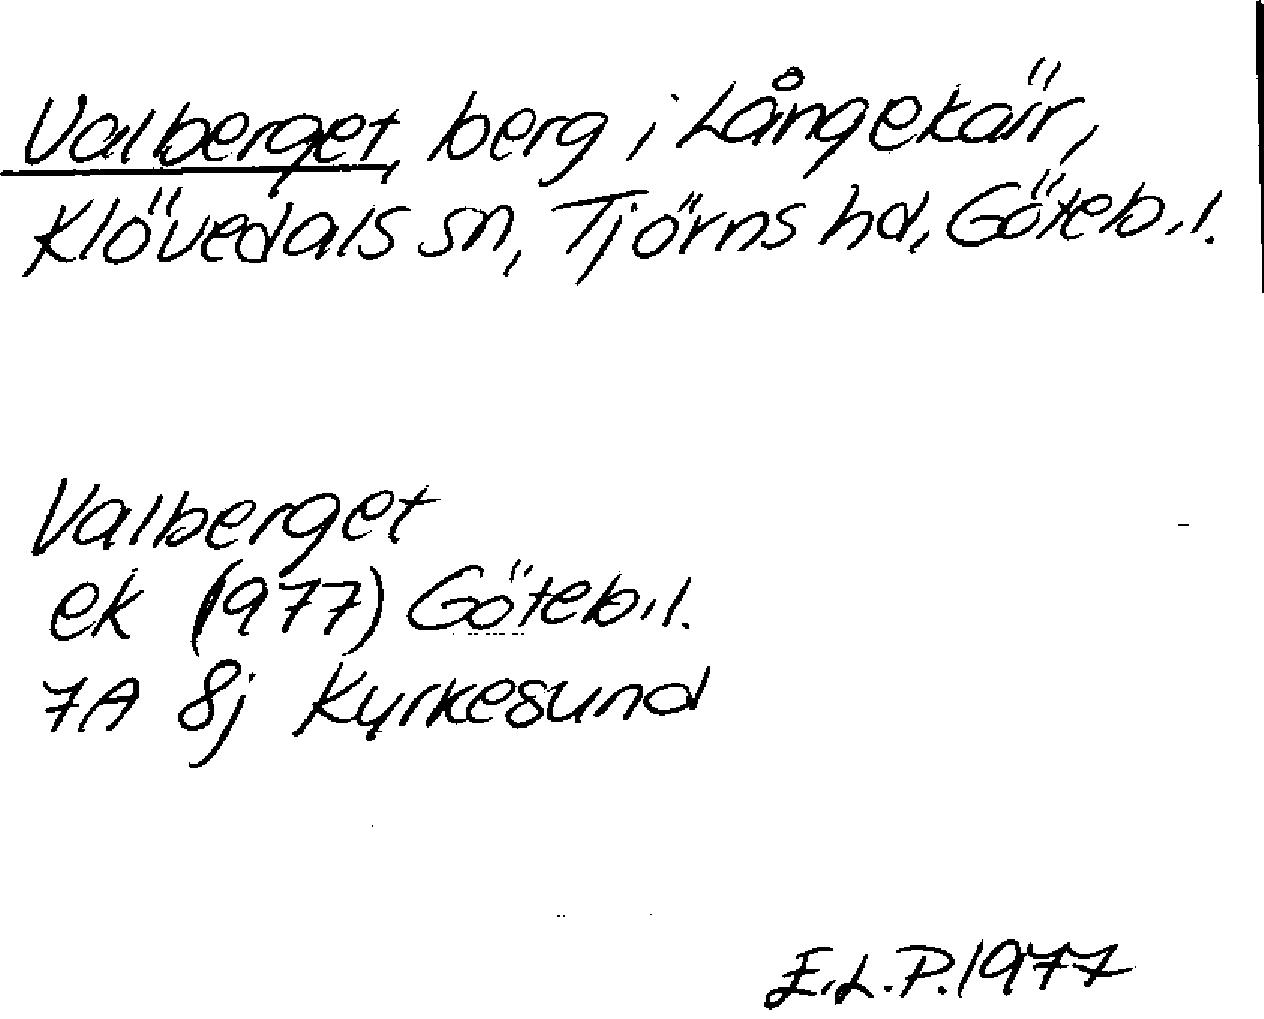 Valberget, berg i Långekärr,
Klövedals sn, Tjörns hd, Göteb. l.
Valberget
ek (1977) Göteb. l.
7A 8j Kyrkesund
E.L.P. 1977